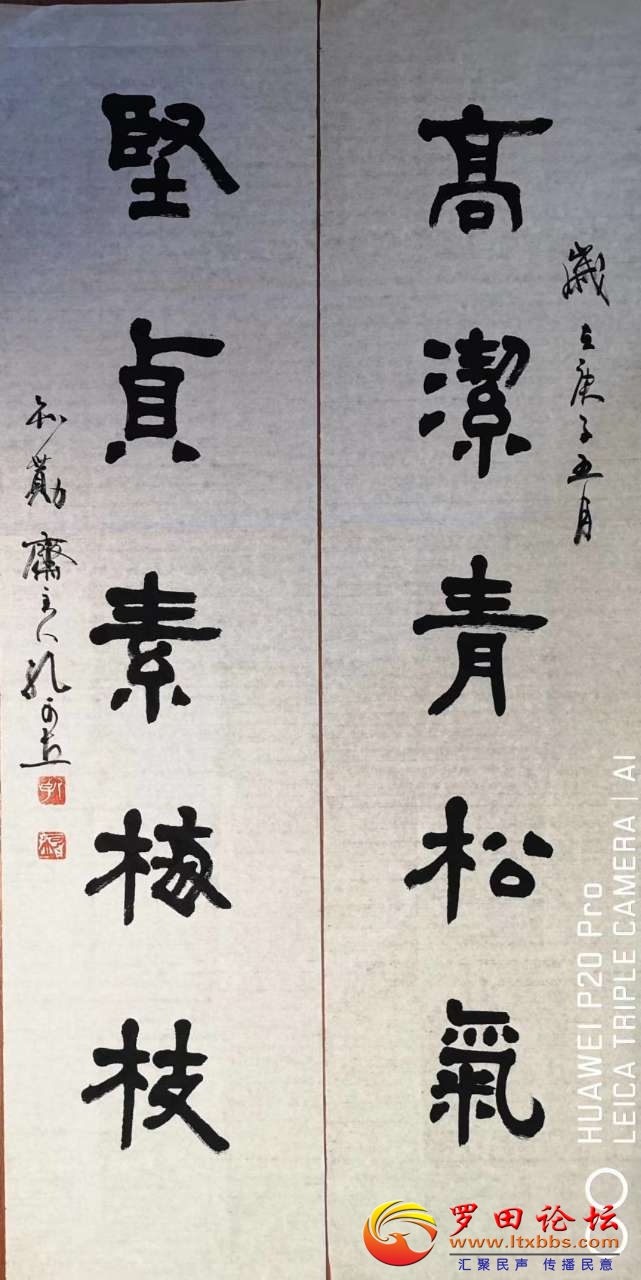 高潔青松氣
歲在庚子五月
堅貞素梅枝
HUAWEI P20 Pro
LEICA TRIPLE CAMERA | AI
罗田论坛
www.ltxbbs.com
汇聚民声 传播民意